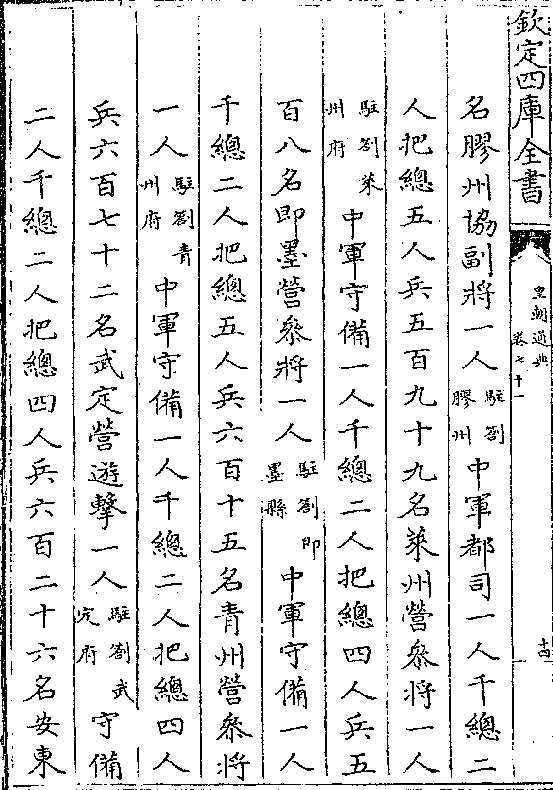 欽定四庫全書
皇朝通典
卷七十一
十四
名膠州協副將一人駐劄膠州中軍都司一人千總二
人把總五人兵五百九十九名萊州營叅將一人
駐劄萊州府中軍守備一人千總二人把總四人兵五
百八名即墨營叅將一人駐劄即墨縣中軍守備一人
千總二人把總五人兵六百十五名青州營叅將
一人駐劄青州府中軍守備一人千總二人把總四人
兵六百七十二名武定營遊擊一人駐劄武定府守備
二人千總二人把總四人兵六百二十六名安東